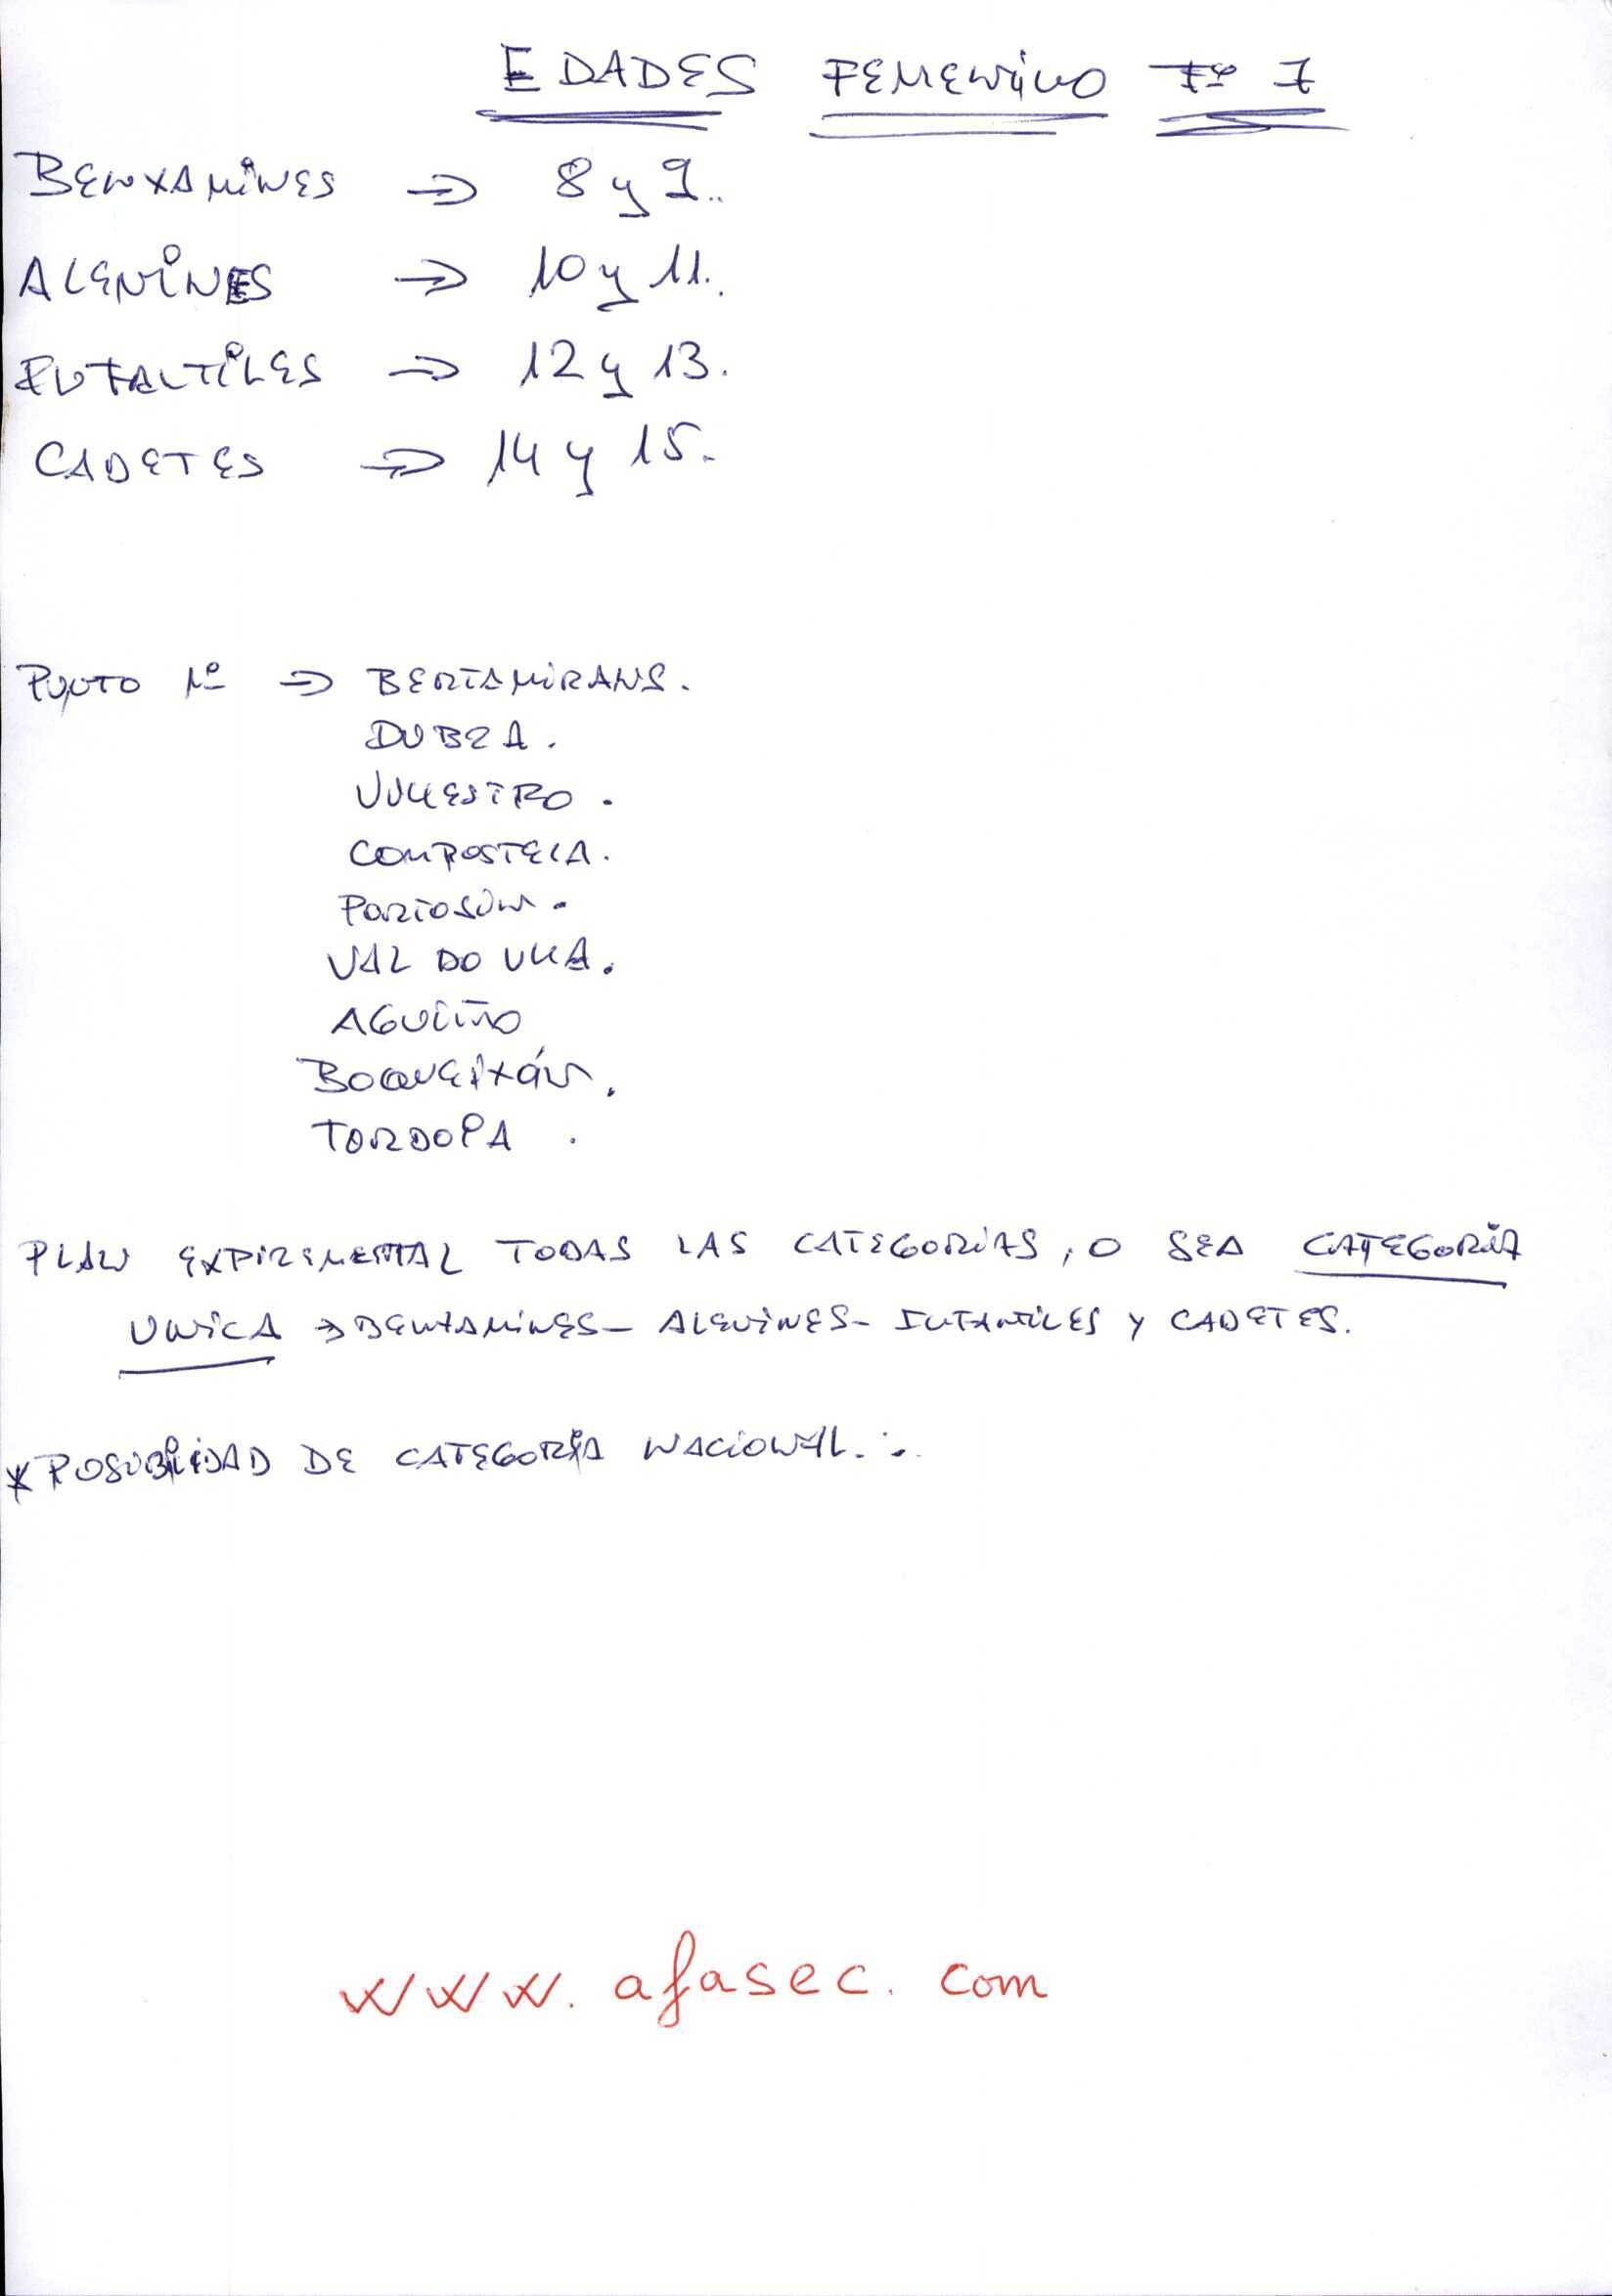 EDADES FEMENINO Fº 7
BENXAMINES → 8 y 9..
ALEVINES → 10 y 11.
INFANTILES → 12 y 13.
CADETES → 14 y 15.
PUNTO Nº → BERTAMIRANS.
DUBRA.
COMPOSTELA.
PORTOSÍN.
VAL DO ULLA.
AGUIÑO
BOQUEIXÓN.
TORDOIA.
PLAN EXPERIMENTAL TODAS LAS CATEGORIAS, O SEA CATEGORIA
UNICA → BENXAMINES - ALEVINES - INFANTILES Y CADETES.
* POSIBILIDAD DE CATEGORIA NACIONAL.
www.afasec.com